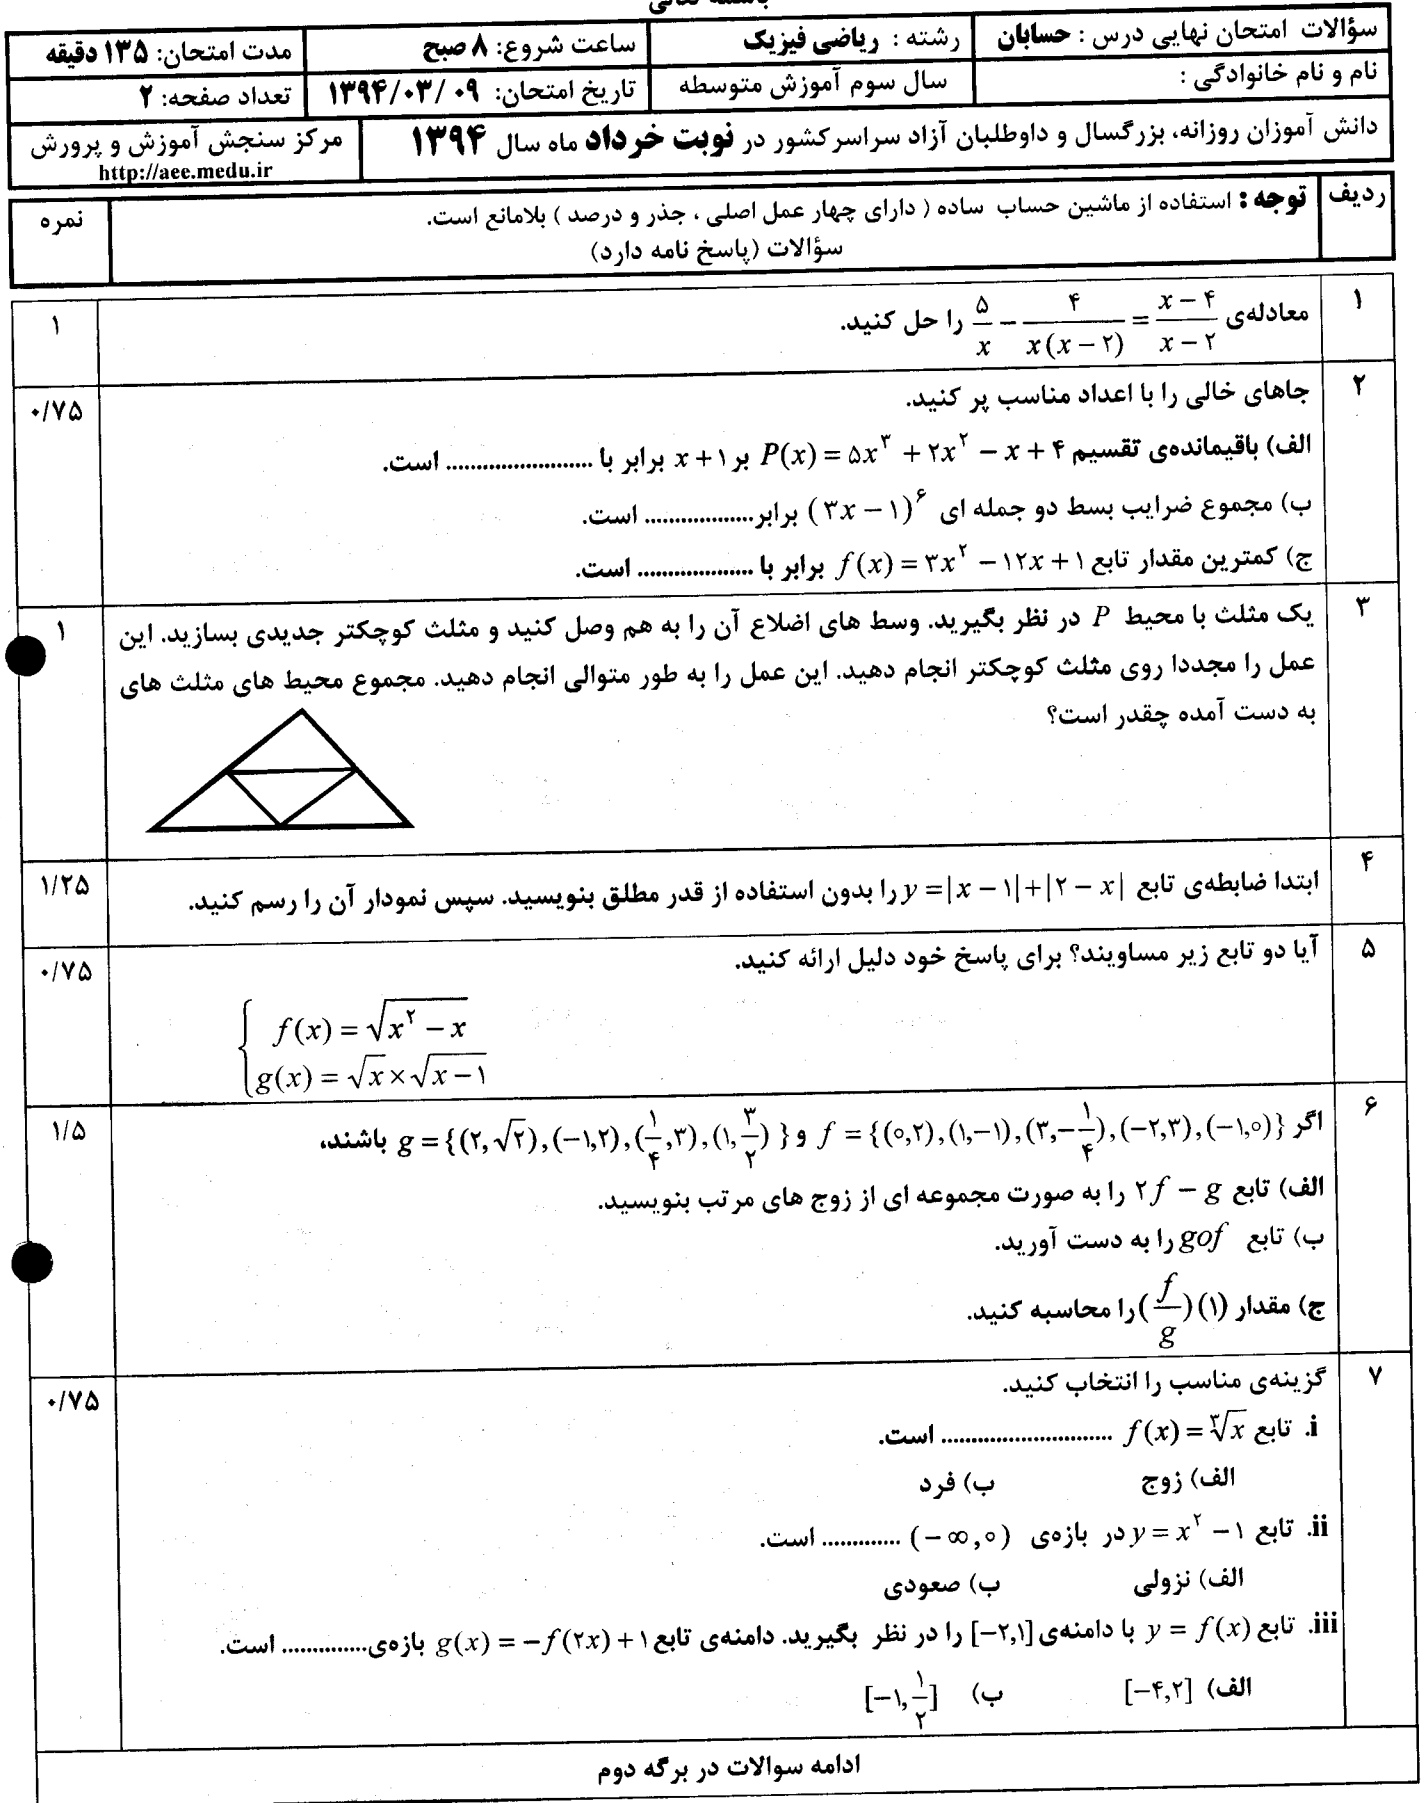 باسمه تعالی
سؤالات امتحان نهایی درس : حسابان رشته : ریاضی فیزیک ساعت شروع: ۸ صبح مدت امتحان: ۱۳۵ دقیقه
نام و نام خانوادگی : سال سوم آموزش متوسطه تاریخ امتحان: ۰۹ /۱۳۹۴/۰۳ تعداد صفحه: ۲
دانش آموزان روزانه، بزرگسال و داوطلبان آزاد سراسرکشور در نوبت خرداد ماه سال ۱۳۹۴ مرکز سنجش آموزش و پرورش
http://aee.medu.ir
ردیف توجه : استفاده از ماشین حساب ساده ( دارای چهار عمل اصلی ، جذر و درصد ) بلامانع است. نمره
سؤالات (پاسخ نامه دارد)
۱ معادله‌ی ۵/x − ۴/(x(x − ۲)) = (x − ۴)/(x − ۲) را حل کنید. ۱
۲ جاهای خالی را با اعداد مناسب پر کنید. ۰/۷۵
الف) باقیمانده‌ی تقسیم P(x) = ۵x³ + ۲x² − x + ۴ بر x + ۱ برابر با ........................ است.
ب) مجموع ضرایب بسط دو جمله ای (۳x − ۱)^۶ برابر.................. است.
ج) کمترین مقدار تابع f(x) = ۳x² − ۱۲x + ۱ برابر با ................... است.
۳ یک مثلث با محیط P در نظر بگیرید. وسط های اضلاع آن را به هم وصل کنید و مثلث کوچکتر جدیدی بسازید. این ۱
عمل را مجددا روی مثلث کوچکتر انجام دهید. این عمل را به طور متوالی انجام دهید. مجموع محیط های مثلث های
به دست آمده چقدر است؟
۴ ابتدا ضابطه‌ی تابع y = |x − ۱| + |۲ − x| را بدون استفاده از قدر مطلق بنویسید. سپس نمودار آن را رسم کنید. ۱/۲۵
۵ آیا دو تابع زیر مساویند؟ برای پاسخ خود دلیل ارائه کنید. ۰/۷۵
f(x) = √(x² − x)
g(x) = √x × √(x − ۱)
۶ اگر f = {(۰,۲),(۱,−۱),(۳,−۱/۴),(−۲,۳),(−۱,۰)} و g = {(۲,√۲),(−۱,۲),(۱/۴,۳),(۱,۳/۲)} باشند، ۱/۵
الف) تابع ۲f − g را به صورت مجموعه ای از زوج های مرتب بنویسید.
ب) تابع gof را به دست آورید.
ج) مقدار (f/g)(۱) را محاسبه کنید.
۷ گزینه‌ی مناسب را انتخاب کنید. ۰/۷۵
i. تابع f(x) = ∛x ............................ است.
الف) زوج ب) فرد
ii. تابع y = x² − ۱ در بازه‌ی (−∞,۰) ............. است.
الف) نزولی ب) صعودی
iii. تابع y = f(x) با دامنه‌ی [−۲,۱] را در نظر بگیرید. دامنه‌ی تابع g(x) = −f(۲x) + ۱ بازه‌ی.............. است.
الف) [−۴,۲] ب) [−۱,۱/۲]
ادامه سوالات در برگه دوم